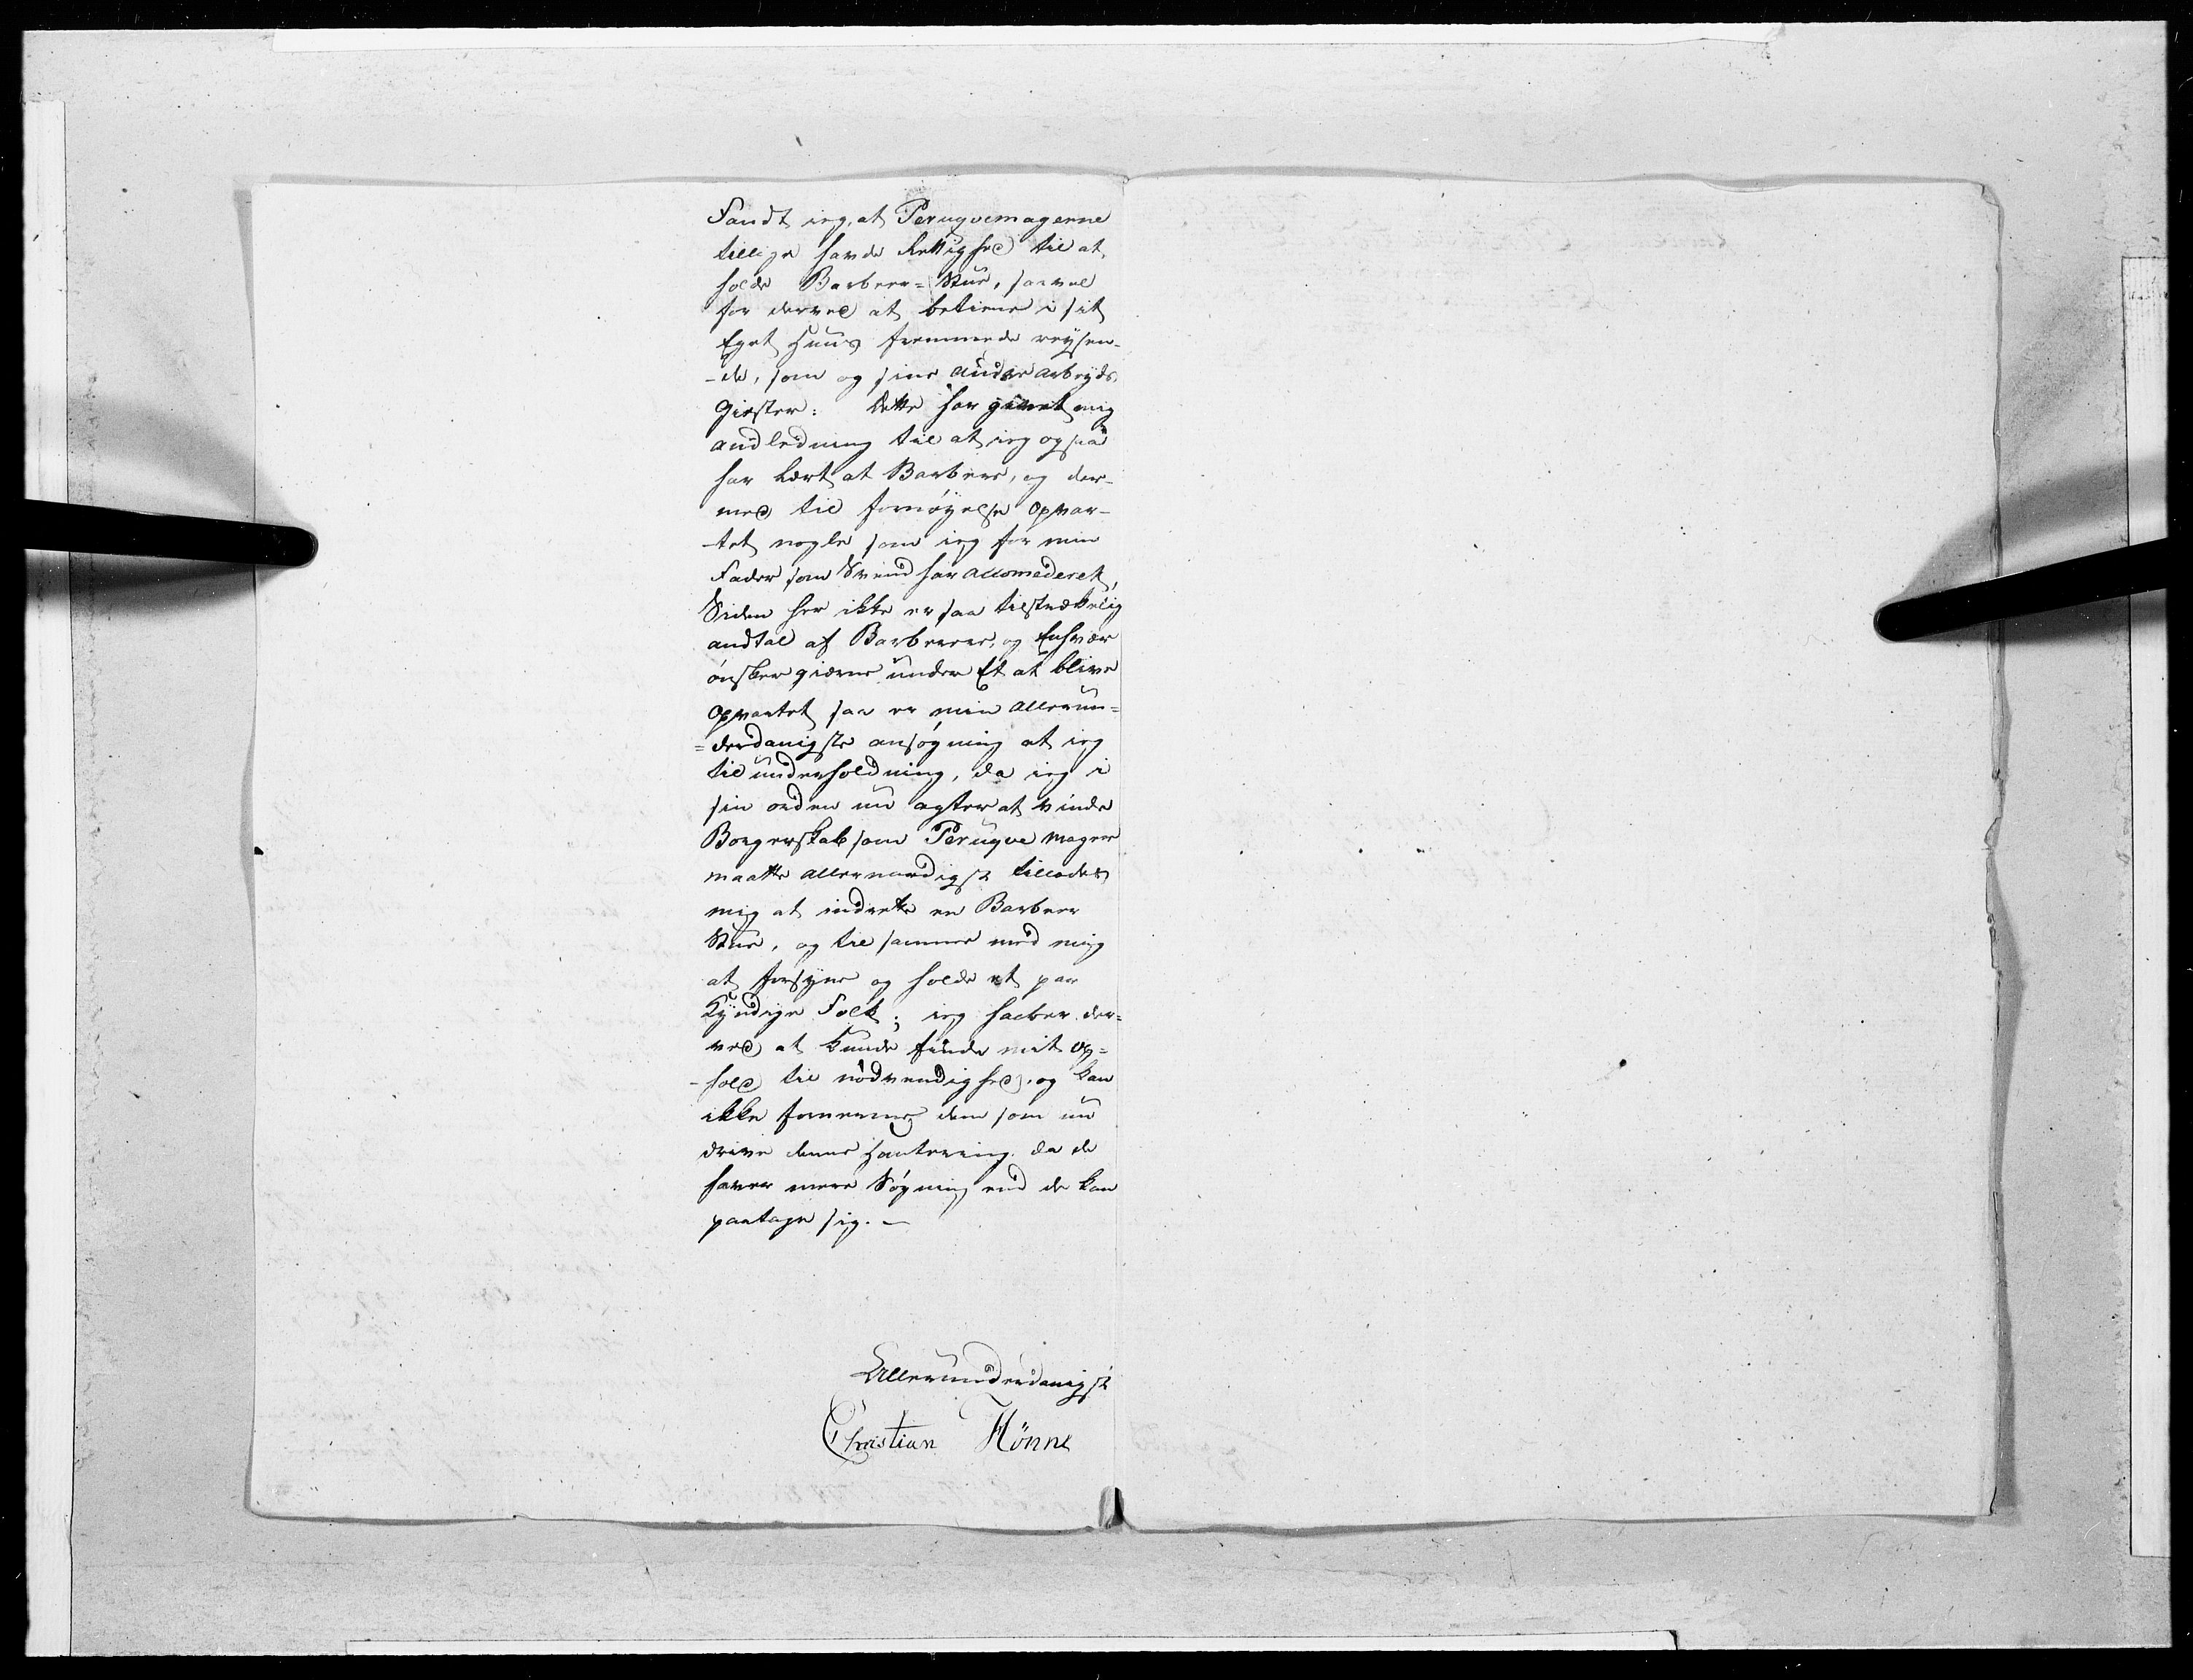 Fandt ieg, at Peruqvemagerne
tillige havde Rettighed til at
holde Barbeer=Stue, saavel
for derved at betiene i sit
Eget Huus fremmede reysen-
-de, som og sine andre arbeyds
Giester: dette har givet mig
andledning til at ieg ogsaa
har lært at Barbere, og der-
med til fornøyelse opvar-
-tet nogle som ieg for min
Fader som Svend har accomederet,
Siden her ikke er saa tilstrækelig
andtal af Barberer, og Enhver
ønsker gierne under Et at blive
opvartet saa er min allerun=
=derdanigste ansøgning at ieg
til underholdning, da ieg i
sin orden nu agter at vinde
Borgerskab som Peruqve mager
maatte allernaadigst tillades
mig at indrette en Barbeer
Stue, og til samme med mig
at forsyne og holde et par
Kyndige Folk; ieg haaber der=
ved at kunde finde mit op=
-hold til nødvendighed, og kan
ikke fornerme dem som nu
drive denne Hantering da de
haver mere Søgning end de kan
paatage sig. -
Allerunderdanigst
Christian Hönne